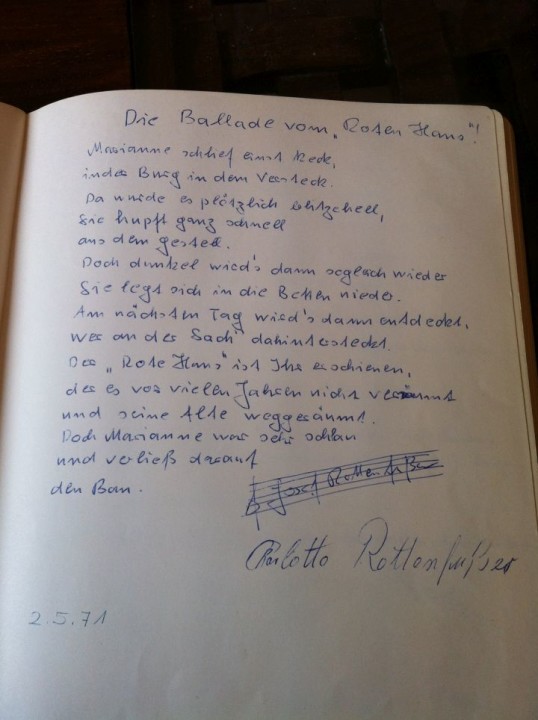 Die Ballade vom „Roten Hans"!
Marianne schlief einst keck,
in der Burg in dem Versteck.
Da wurde es plötzlich blitzhell,
Sie hupft ganz schnell
aus dem gestell.
Doch dunkel wird's dann sogleich wieder
Sie legt sich in die Betten nieder.
Am nächsten Tag wird's dann entdeckt,
wer an der Sach' dahintersteckt.
Der „Rote Hans" ist Ihr erschienen,
der es vor vielen Jahren nicht versäumt
und seine Alte weggeräumt.
Doch Marianne war sehr schlau
und verließ darauf
den Bau.
Josef Rottenfußer
Rottenfußer
2.5.71